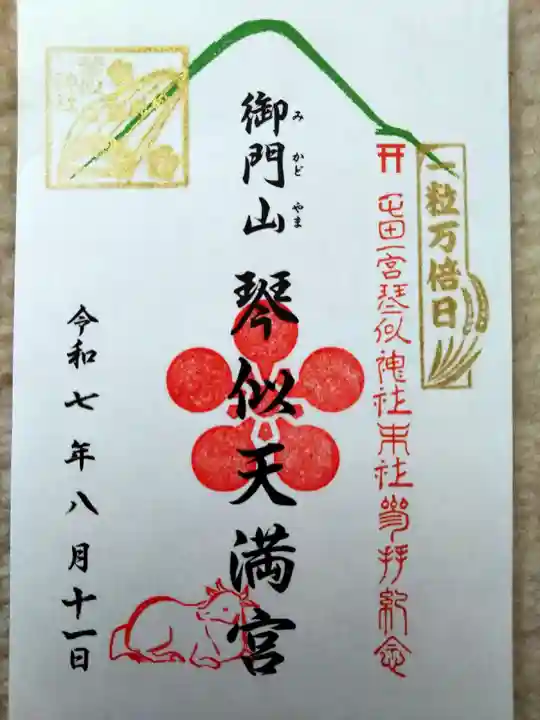 一粒万倍日
屯田一宮琴似神社末社参拝紀念
御門山 琴似天満宮
みかどやま
令和七年八月十一日